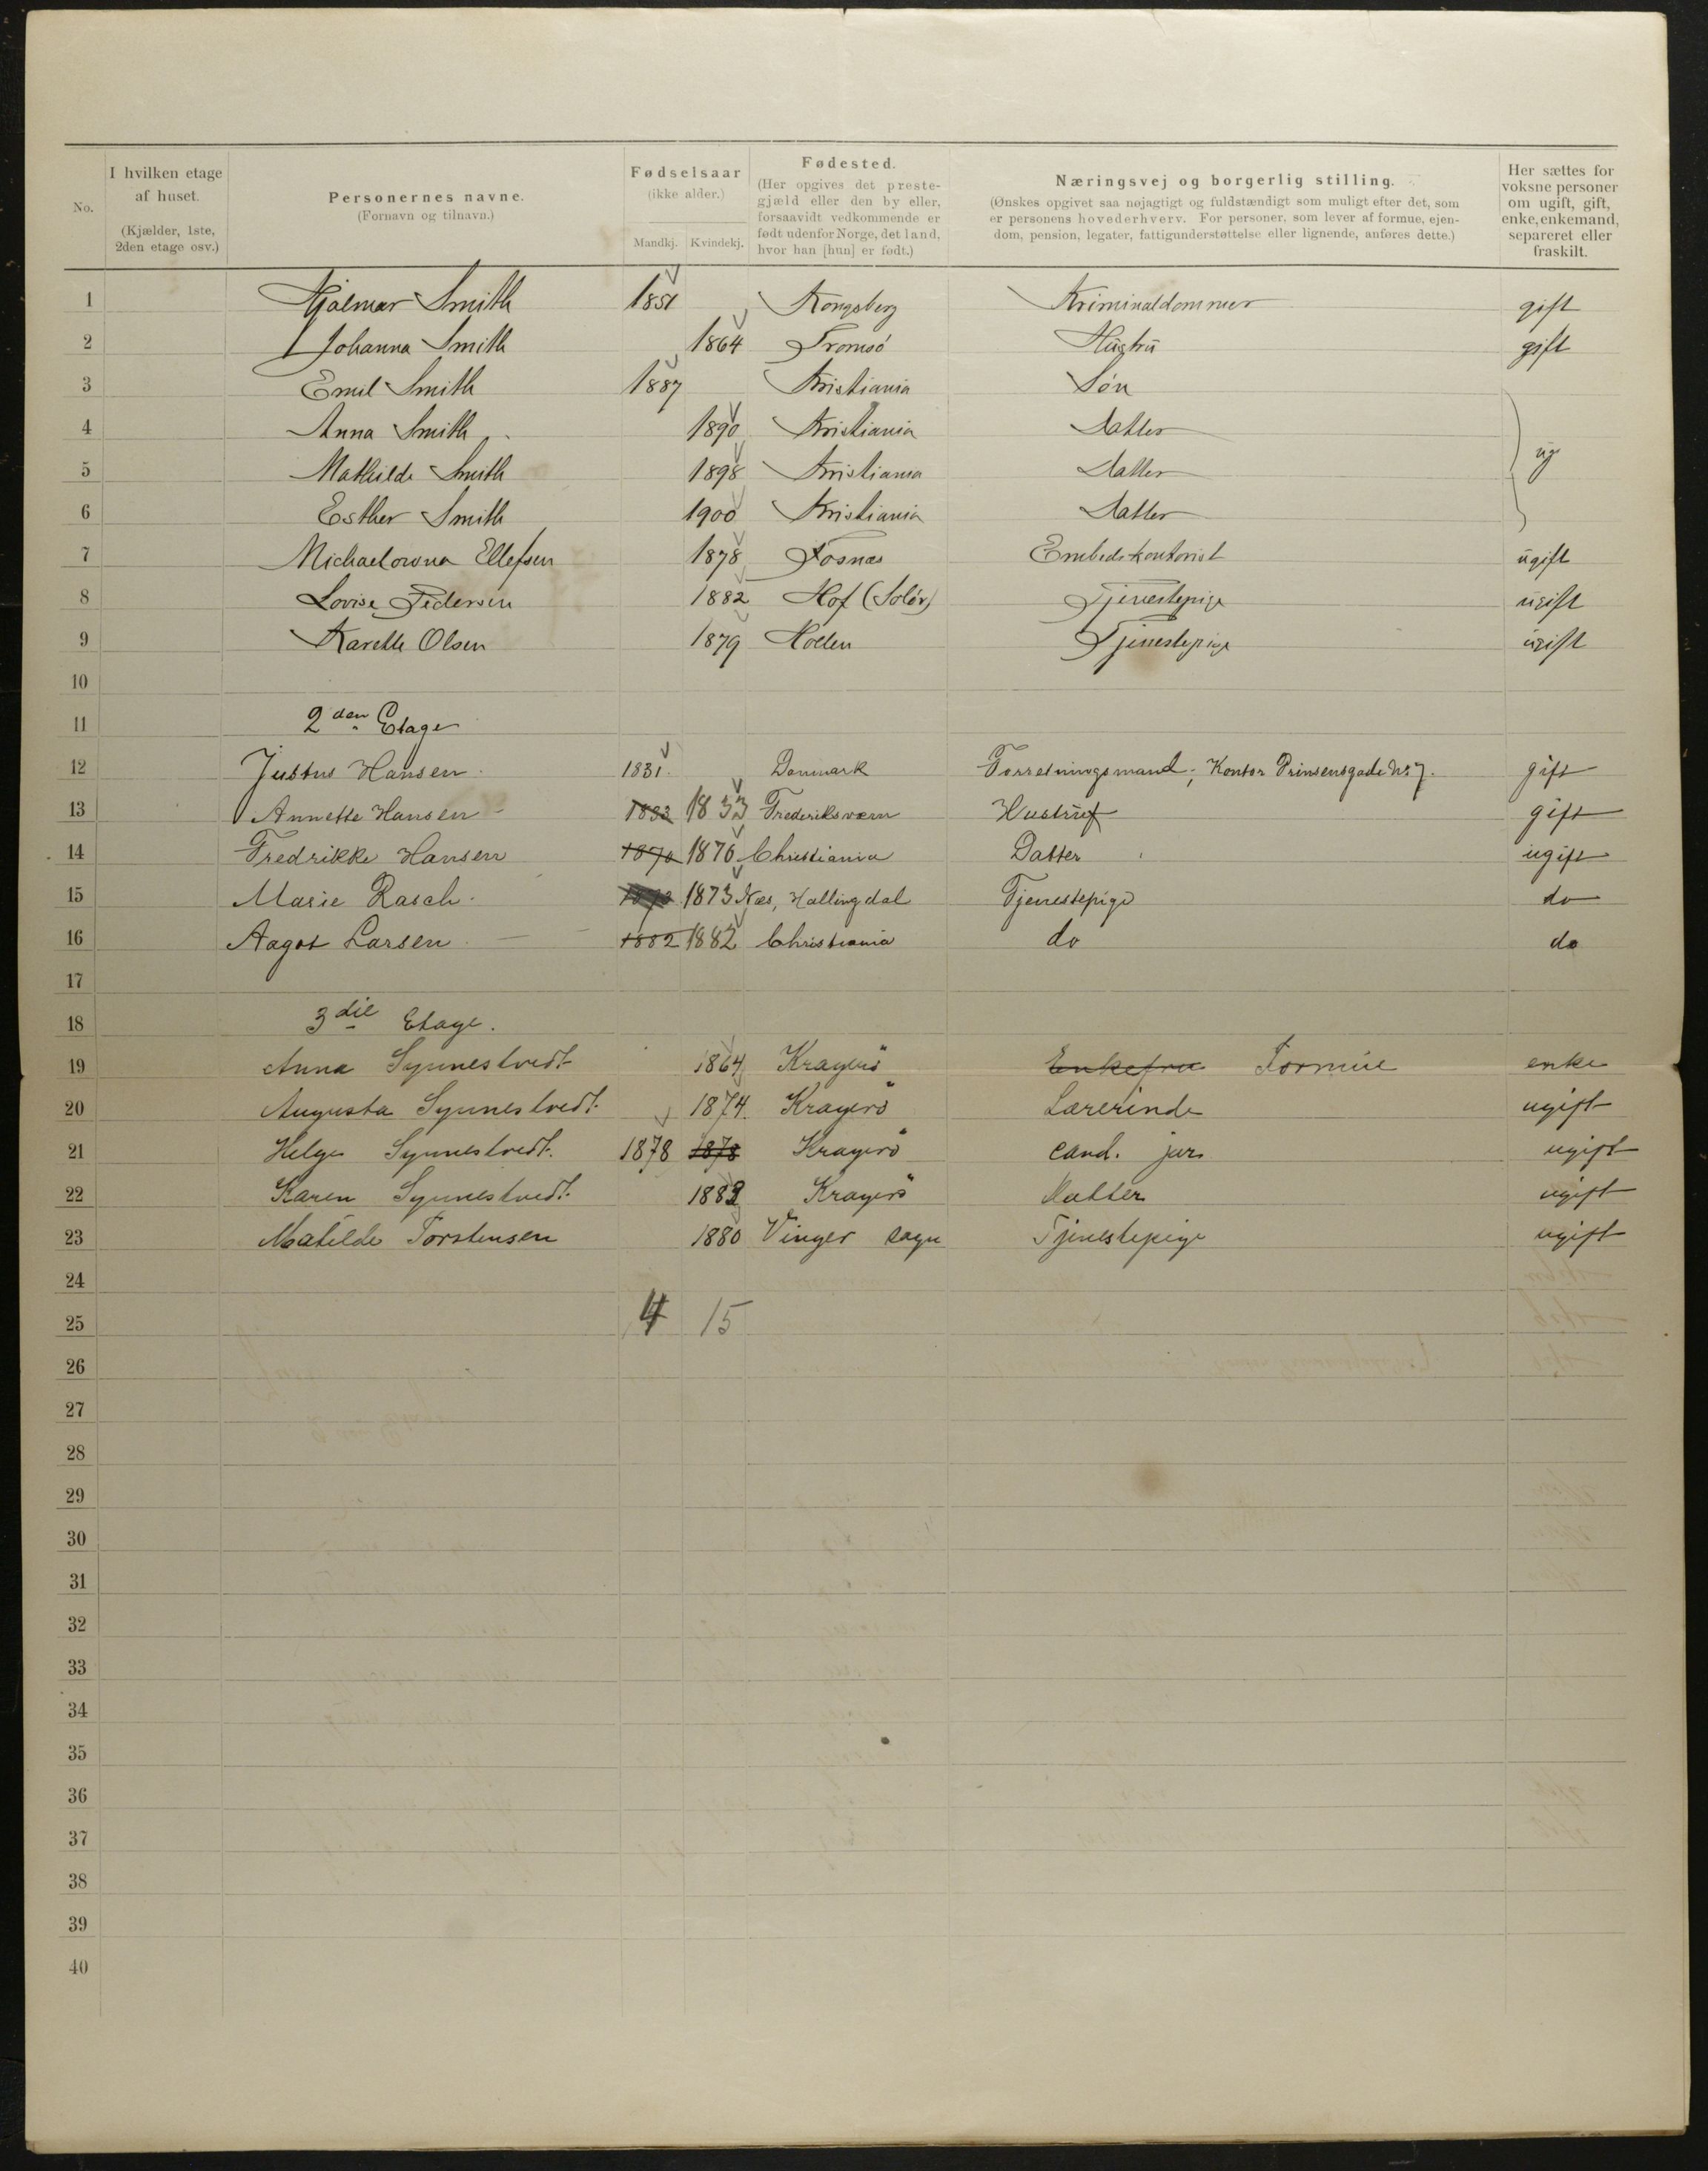 No. I hvilken etage af huset. (Kjælder, 1ste, 2den etage osv.) Personernes navne. (Fornavn og tilnavn.) Fødselsaar (ikke alder.) Mandkj. Kvindekj. Fødested. (Her opgives det prestegjæld eller den by eller, forsaavidt vedkommende er født udenfor Norge, det land, hvor han [hun] er født.) Næringsvej og borgerlig stilling. (Ønskes opgivet saa nøjagtigt og fuldstændigt som muligt efter det, som er personens hovederhverv. For personer, som lever af formue, ejendom, pension, legater, fattigunderstøttelse eller lignende, anføres dette.) Her sættes for voksne personer om ugift, gift, enke, enkemand, separeret eller fraskilt.
1 Hjalmar Smith 1851 Kongsberg Kriminaldommer gift
2 Johanna Smith 1864 Tromsö Hustru gift
3 Emil Smith 1887 Kristiania Sön
4 Anna Smith 1890 Kristiania Datter
5 Mathilde Smith 1898 Kristiania Datter ug
6 Esther Smith 1900 Kristiania Datter
7 Michaelowna Ellefsen 1878 Fosnæs Embedskontorist ugift
8 Lovise Pedersen 1882 Hof (Solör) Tjenestepige ugift
9 Karethe Olsen 1879 Holden Tjenestepige ugift
10
11 2den Etage
12 Justus Hansen 1831 Danmark Forretningsmand; Kontor Prinsensgade No 7. gift
13 Annette Hansen 1833 1833 Frederiksværn Hustruf gift
14 Fredrikke Hansen 1870 1870 Christiania Datter ugift
15 Marie Rasch 1873 Næs, Hallingdal Tjenestepige do
16 Aagot Larsen 1882 1882 Christiania do do
17
18 3die Etage.
19 Anna Synnestvedt 1864 Kragerö Enkefru Formue enke
20 Augusta Synnestvedt 1874. Kragerö Lærerinde ugift
21 Helge Synnestvedt. 1878 1878 Kragerö cand. jur. ugift
22 Karen Synnestvedt Kragerö Datter ugift
23 Matilde Torstensen 1880 Vinger sogn Tjenestepige ugift
24
25 4 15
26
27
28
29
30
31
32
33
34
35
36
37
38
39
40